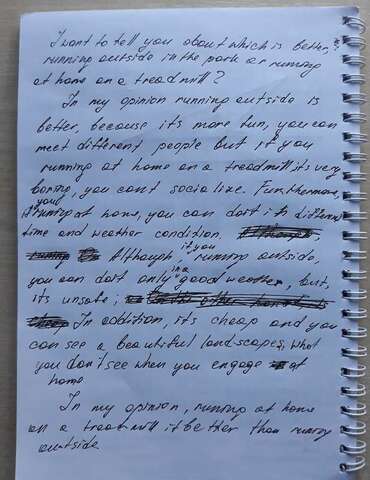 I want to tell you about which is better,
running outside in the park or running
at home on a treadmill?
In my opinion running outside is
better, because it's more fun, you can
meet different people but if you
running at home on a treadmill it's very
boring, you cant socialize. Furthermore,
if you running at home, you can do it in different
time and weather condition.
Although, if you running outside,
you can do it only in a good weather, but,
its unsafe;
In addition, it's cheap and you
can see a beautiful landscapes, what
you don't see when you engage at
home
In my opinion, running at home
on a treadmill it better than runing
outside